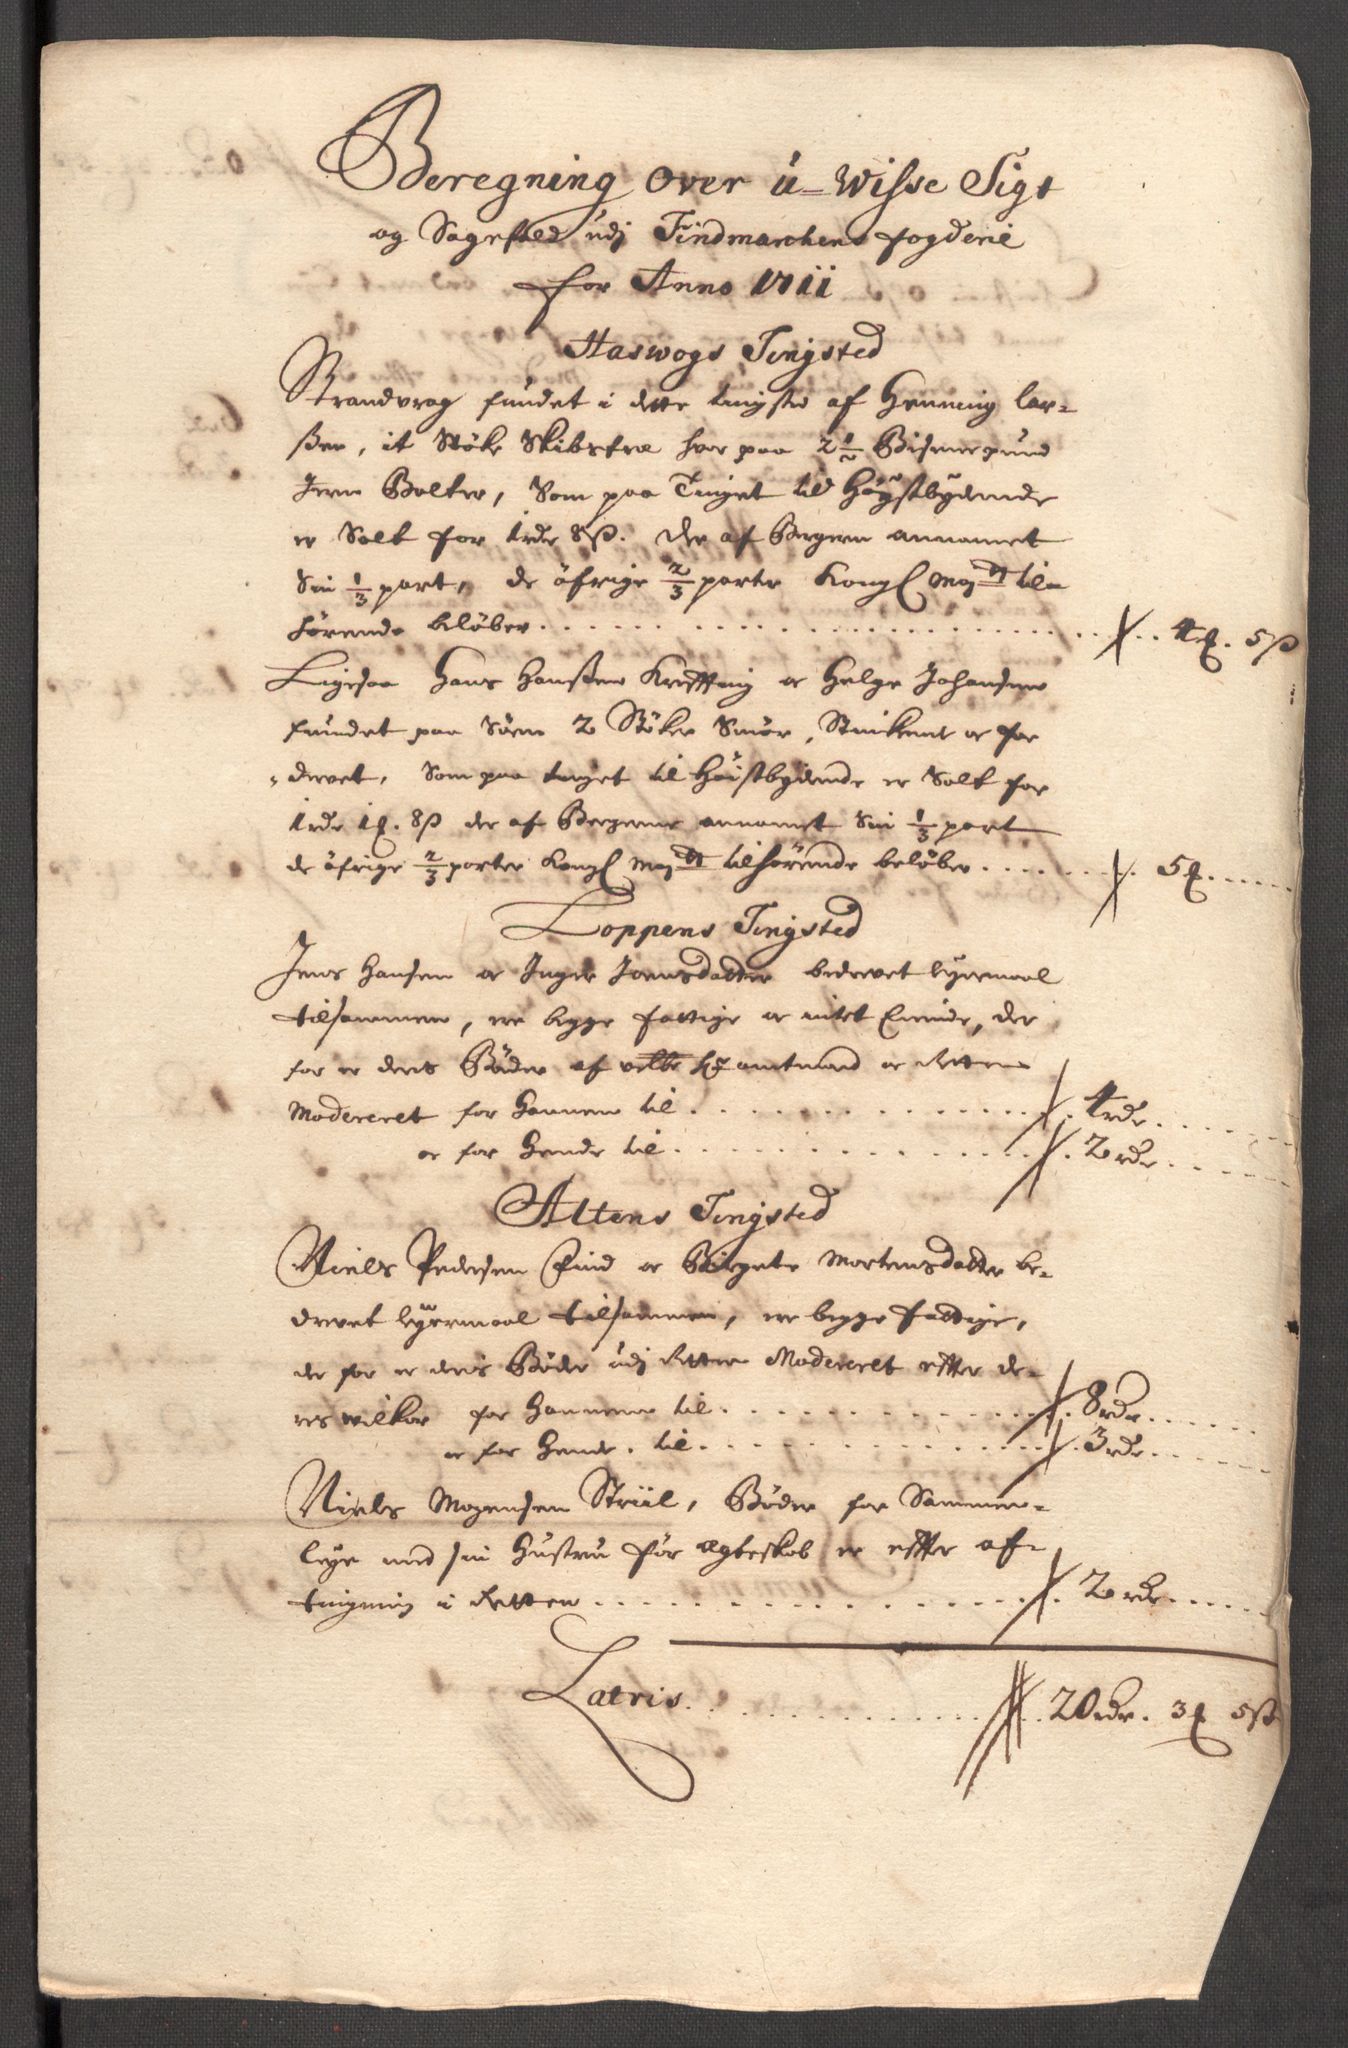 Beregning over ú-wisse Sigt
og Sagefald udj Findmarchens fogderie
for Anno 1711
Haswogs Tingsted
Strandvrag fundet i dette tingsted af Henning lar-
ßen, it Støke Skibstræ hvor paa 2½ Bismerpund
Jern Bolter, Som paa Tinget til Høystbydende
er Solt for 1 rdr 8 ß. der af Bergeren annamet
Sin 1/3 part, de öfrige 2/3 parter Kongl Maytt til-
hørende beløber . . . 4 ℔. 5 ß
Ligesaa Hans Hanßen Kreffting oc Helge Johansen
fundet paa Søen 2 Støker Smör, Stinkent oc for
-dervet, Som paa tinget til Høistbydende er Solt for
1 rdr 1 ℔. 8 ß der af Bergerne annamet Sin 1/3 part
de öfrige 2/3 parter Kongl Maytt tilhørende beløber . . . 5 ℔
Loppens Tingsted
Jens Hansen oc Inger Joensdatter bedrevet leyermaal
tilsammen, ere begge fattige oc intet Eiende, der
for er deris Bøder af velbr Hr amtmand oc Retten
Modereret for Hannem til . . . 4 rdr
oc for Hende til . . . 2 rdr
Altens Tingsted
Niels Pedersen Find oc Birgete Mortensdatter be-
drevet leyermaal tilsammen, ere begge fattige,
der for er deris Bøder udj Retten Modereret effter de-
res wilkor for Hannem til . . . 8 rdr
oc for Hende til . . . 3 rdr
Niels Mogensen Striil, Bøder for Sammen-
leye med sin Hustru før ægteskab er effter af-
tingning i Retten . . . 2 rdr
Lateris . . . 20 rdr. 3 ℔ 5 ß